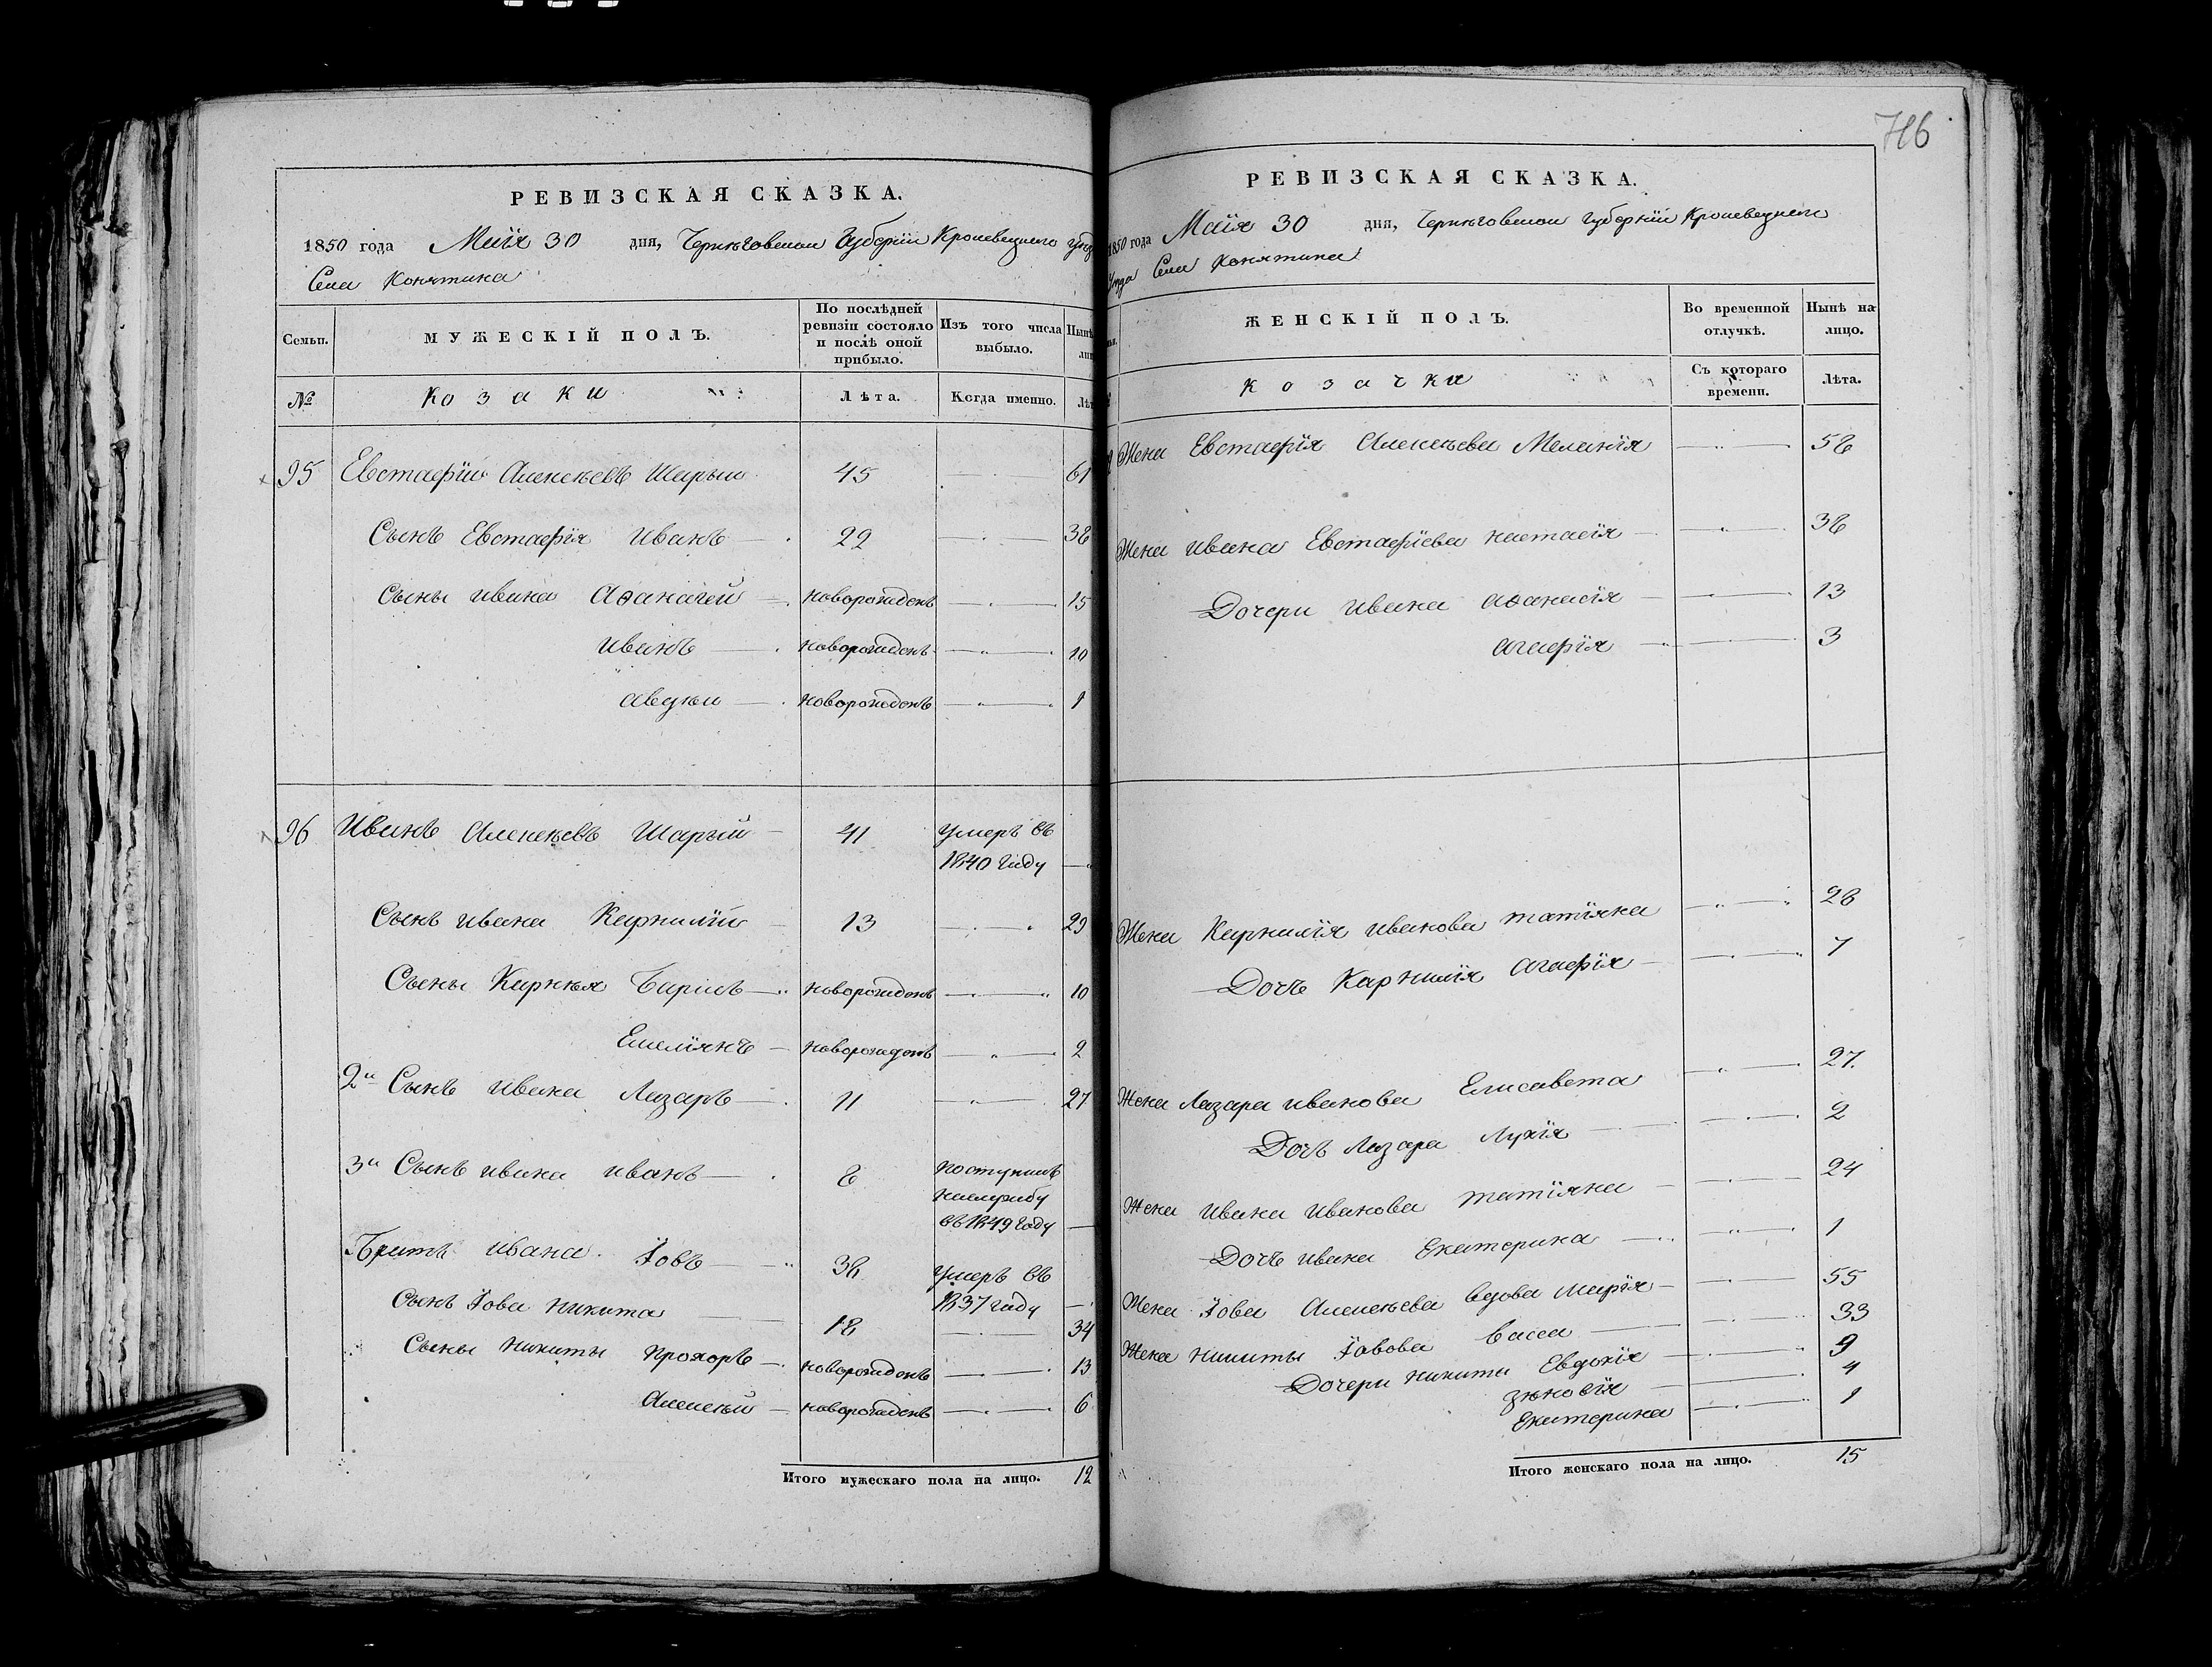 716
РЕВИЗСКАЯ СКАЗКА.
1850 года Маия 30 дня, Черниговской Губернии Кролевецкаго уезда
Села Конятина
Семьи. МУЖЕСКІЙ ПОЛЪ. По послѣдней ревизіи состояло и послѣ оной прибыло. Изъ того числа выбыло. Нынѣ
№ Козаки Лѣта. Когда именно. Лѣт
95 Евстафій Алексѣевъ Шарый 45 61
Сынъ Евстафія Иванъ 22 38
Сыны Ивана Аѳанасей новорожденъ 15
Иванъ новорожденъ 10
Авдѣй новорожденъ 1
96 Иванъ Алексѣевъ Шарый 41 умеръ въ
1840 году
Сынъ Ивана Карнилій 13 29
Сыны Карнѣя Барисъ новорожденъ 10
Емеліянъ новорожденъ 2
2й Сынъ Ивана Лазаръ 11 27
3й Сынъ Ивана Иванъ 8 поступилъ
наслужбу
въ 1849 году
Братъ Ивана Іовъ 38 умеръ въ
1837 году
Сынъ Іова Никита 18 34
Сыны Никиты Прохоръ новорожденъ 13
Алексѣй новорожденъ 6
Итого мужескаго пола на лицо. 12
РЕВИЗСКАЯ СКАЗКА.
1850 года Маія 30 дня, Черниговской Губерніи Кролевецкаго
Уезда Села Конятина
ЖЕНСКІЙ ПОЛЪ. Во временной отлучкѣ. Нынѣ на лицо.
Козачки Съ котораго времени. Лѣта.
Жена Евстафія Алексѣева Меланія 58
Жена Ивана Евстафіева Настасія 38
Дочери Ивана Аѳанасія 13
Агафія 3
Жена Карнилія Иванова Татіяна 28
Дочъ Карнилія Агафія 7
Жена Лазара Иванова Елисавета 27
Дочъ Лазара Лукія 2
Жена Ивана Иванова Татіяна 24
Дочъ Ивана Екатерина 1
Жена Іова Алексѣева вдова Марія 55
Жена Никиты Іовова Васса 33
Дочери Никиты Евдокія 9
Зѣновія 4
Екатерина 1
Итого женскаго пола на лицо. 15